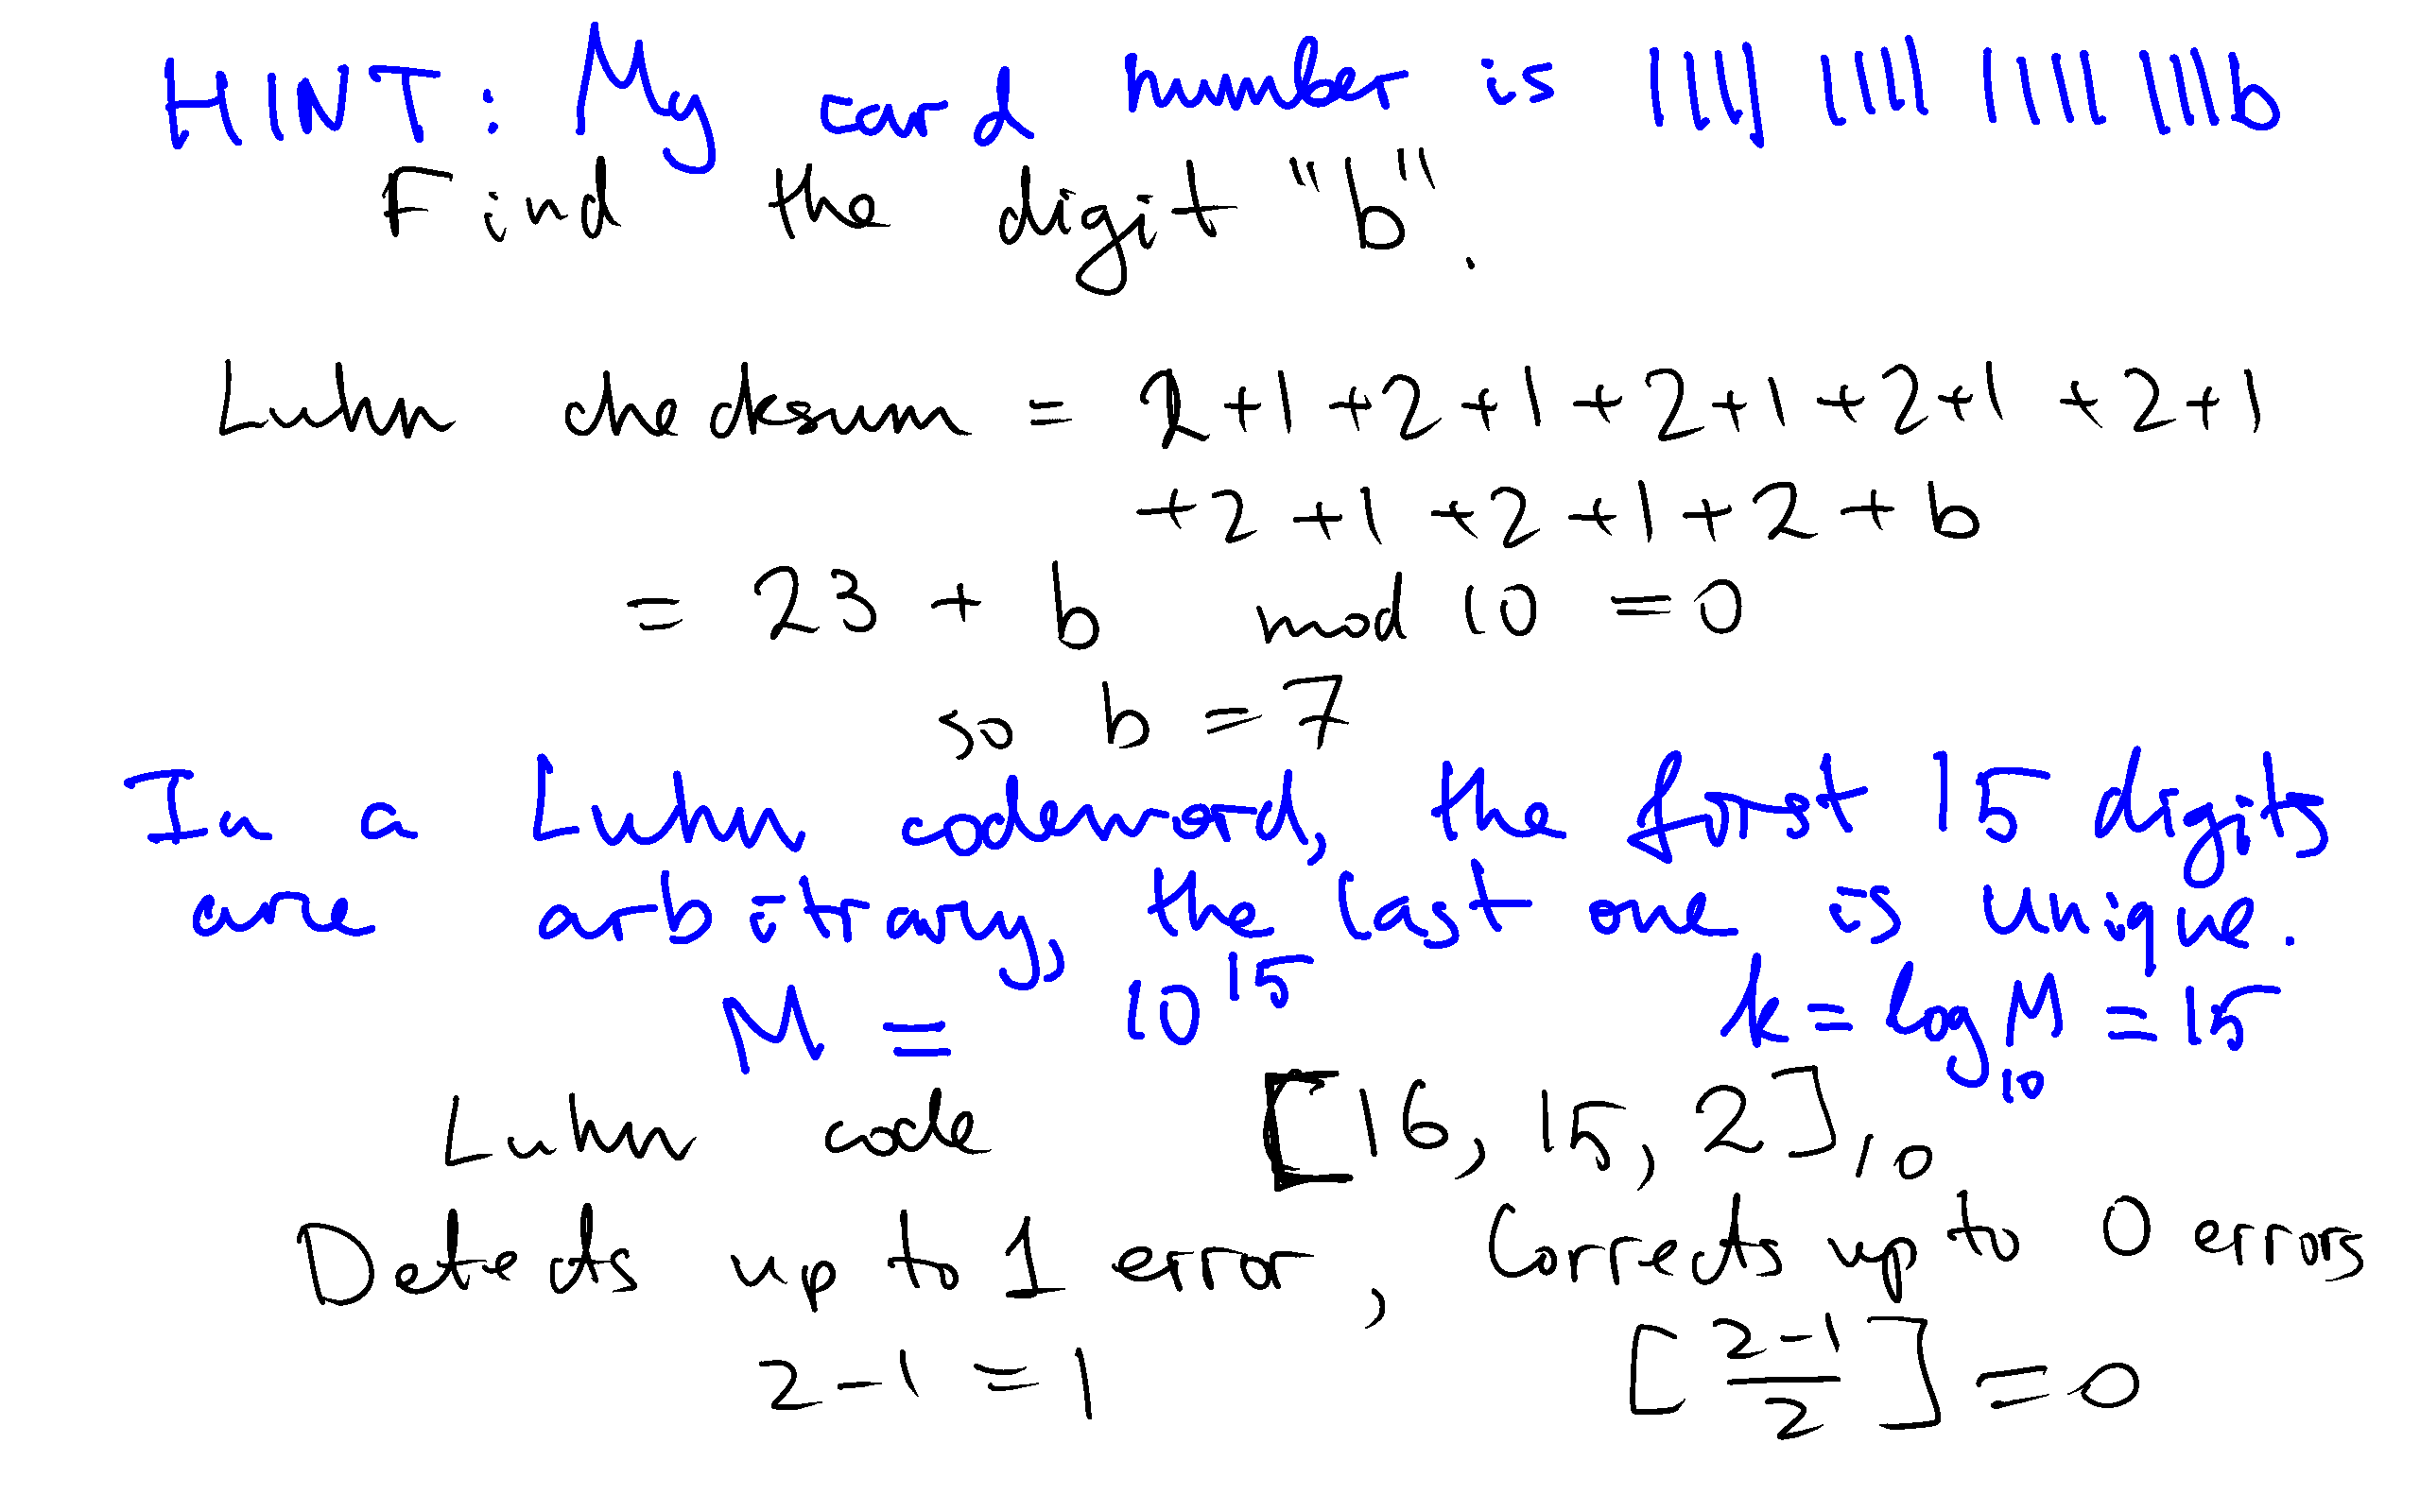 HINT: My card number is 1111 1111 1111 111b
Find the digit "b".
Luhn checksum = 2+1+2+1+2+1+2+1+2+1
+2+1+2+1+2+b
= 23 + b mod 10 = 0
so b = 7
In a Luhn codeword, the first 15 digits
are arbitrary, the last one is unique.
M = 10^15 k = log_10 M = 15
Luhn code [16, 15, 2]_10
Detects up to 1 error, Corrects up to 0 errors
2-1=1 [(2-1)/2] = 0